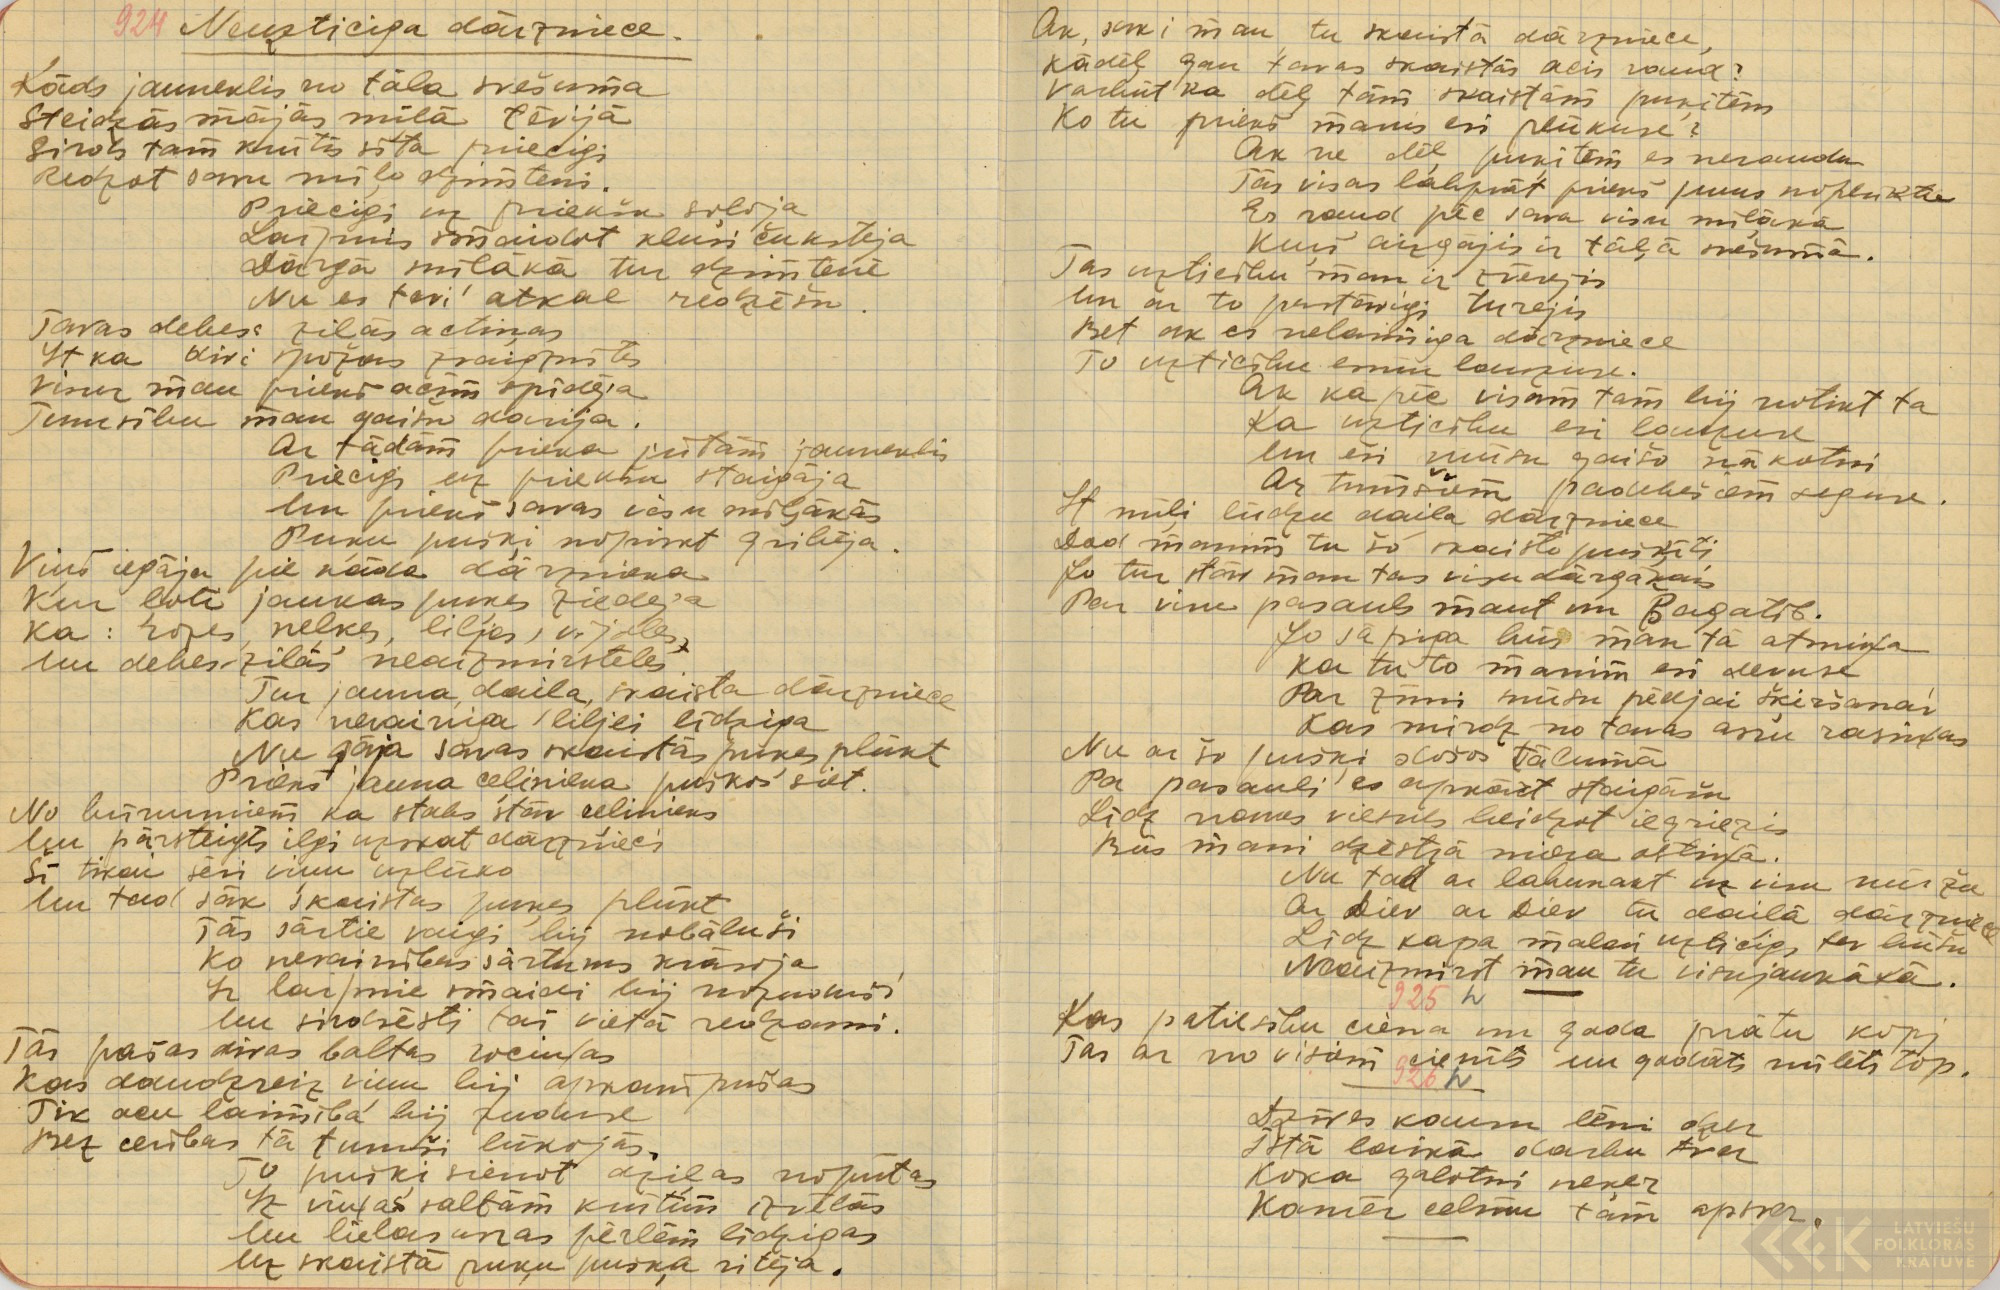 924 Neuzticiga dārzniece.
Kāds jauneklis no tāla svešuma
Steidzās mājās mīlā tēvijā
Sirds tam krūtīs sita priecigi
Redzot savu mīļo dzimteni.
Priecigi uz priekšu soļoja
Laipnis smaidot klusi čuksteja
Dārgā mīlākā tur dzimtenē
Nu es tevi atkal redzēšu.
Tavas debess zilās actiņas
It ka divi spožas zvaigznites
Visur man priekš acīm spīdēja
Tumsibu man gaišu darija.
Ar tādām prieka jūtām jauneklis
Priecigi uz priekšu staigāja
Un priekš savas visu mīļākās
Puķu puški nopirkt gribēja.
Viņš iegāja pie kāda dārznieka
Kur ļoti jaukas puķes ziedēja
Ka: rozes, nelkes, liljes, vijoles,
un debes-zilās neaizmirsteles
Tur jauna, daila, skaista dārzniece
Kas nevainiga liljei līdziga
Nu gāja savas skaistās puķes plūkt
Priekš jauna celinieka puškos siet.
No burvumiem ka stabs stāv celinieks
Un pārsteigts ilgi uzskat dārznieci
Šī tikai sēri viņu uzlūko
Un tad sāk skaistas puķes plūkt
Tās sārtie vaigi bij nobāluši
Ko nevainibas sārtums krāsoja
Iz laipnie smaidi bij nozuduši
Un sirdsēsti tai vietā redzami.
Tās pašas divas baltas rociņas
Kas daudzreiz viņu bij apkampušas
Tik acu laimibā bij zuduse
Bez ceribas tā tumši lūkojās.
To puški sienot dziļas nopūtas
Iz viņas saltām krūtim izvēlās
Un lielas asras pērlēm līdzigas
Uz skaistā puķu puška ritēja.
Ak, saki man, tu skaistā dārzniece,
Kādēļ gan tavas skaistās acis raud?
Varbūt ka dēļ tām skaistām puķitēm
Ko tu priekš manis esi plūkuse?
Ak ne dēļ puķitēm es neraudu
Tās visas labprāt priekš jums noplūktu
Es raud pēc sava visu mīļākā
Kurš aizgājis ir tāļā svešumā.
Tas uzticibu man ir zvērejis
Un ar to pastāvigi turejis
Bet ak es nelaimiga dārzniece
To uzticibu esmu lauzuse.
Ak ka pēc visam tam bij notikt ta
Ka uzticibu esi lauzuse
Un esi mūsu gaišo nākotni
Ar tumšiem padebešiem seguse.
It mīļi lūdzu daila dārzniece
Dod manim tu šo skaisto puškiti
Jo tur stāv man tas visudārgākais
Par visu pasauls mant un Bagatib.
Jo šā puķa būs man tā atmiņa
Ka tu to manim esi devuse
Par zīmi mūsu pēdjai šķiršanai
Kas mirdz no tavas asru rasiņas
Nu ar šo puški došos tālumā
Pa pasauli es apkārt staigāšu
Līdz nāves viesuls beidzot iegriezis
Būs mani dzēstjā miera ostiņā.
Nu tad ar labunakt uz visu mūžu
Ar Diev ar Diev tu dailā dārzniece
Lidz kapa malai uzticigs tev būšu
Neaizmirst man tu visujaukākā.
925 h
Kas patiesibu ciena un goda prātu kopj
Tas ar no visiem cienīts un godāts mīlēts top.
926 h
Dzīves kausu lēni dzer
Istā laikā darbu tver
Koka galotni neķer
Kamēr celmu tam apsver.
LATVIEŠU
FOLKLORAS
KRĀTUVE